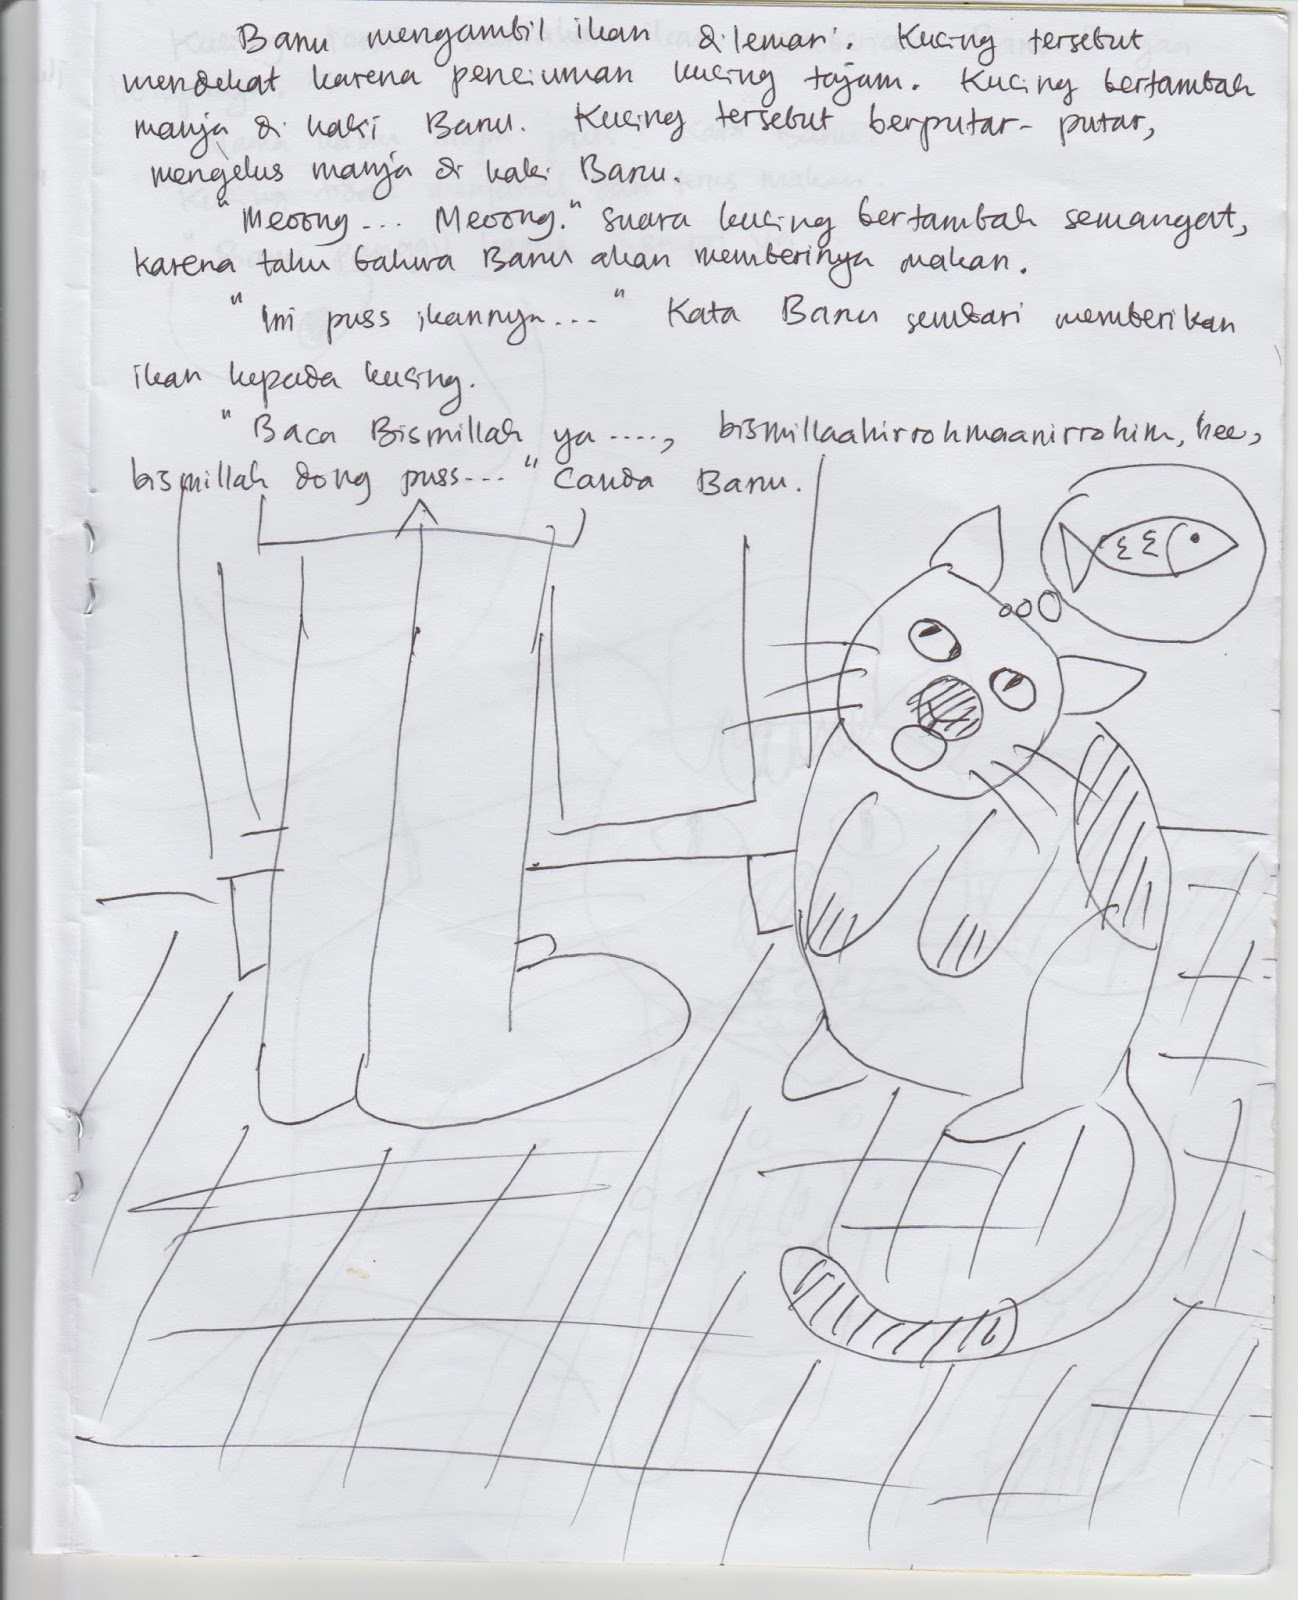 Banu mengambil ikan dilemari. Kucing tersebut
mendekat karena penciuman kucing tajam. Kucing bertambah
manja di kaki Banu. Kucing tersebut berputar-putar,
mengelus manja di kaki Banu.
"Meoong... Meoong." Suara kucing bertambah semangat,
karena tahu bahwa Banu akan memberinya makan.
"Ini puss ikannya..." Kata Banu sembari memberikan
ikan kepada kucing.
"Baca Bismillah ya...., bismillaahirrohmaanirrohim, hee,
bismillah dong puss..." Canda Banu.